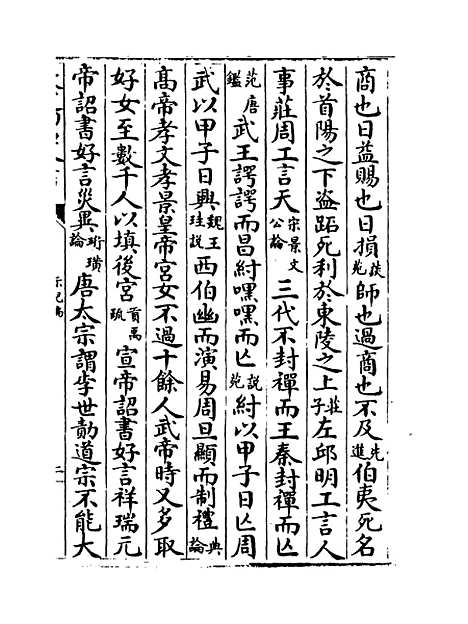 商也日益賜也日損說苑師也過商也不及先進伯夷死名
於首陽之下盜跖死利於東陵之上莊子左邱明工言人
事莊周工言天宋景文公論三代不封禪而王秦封禪而亡
范唐鑑武王諤諤而昌紂嘿嘿而亡說苑紂以甲子日亡周
武以甲子日興魏王珪說西伯幽而演易周旦顯而制禮典論
高帝孝文孝景皇帝宮女不過十餘人武帝時又多取
好女至數千人以填後宮貢禹疏宣帝詔書好言祥瑞元
帝詔書好言災異珩璜論唐太宗謂李世勣道宗不能大